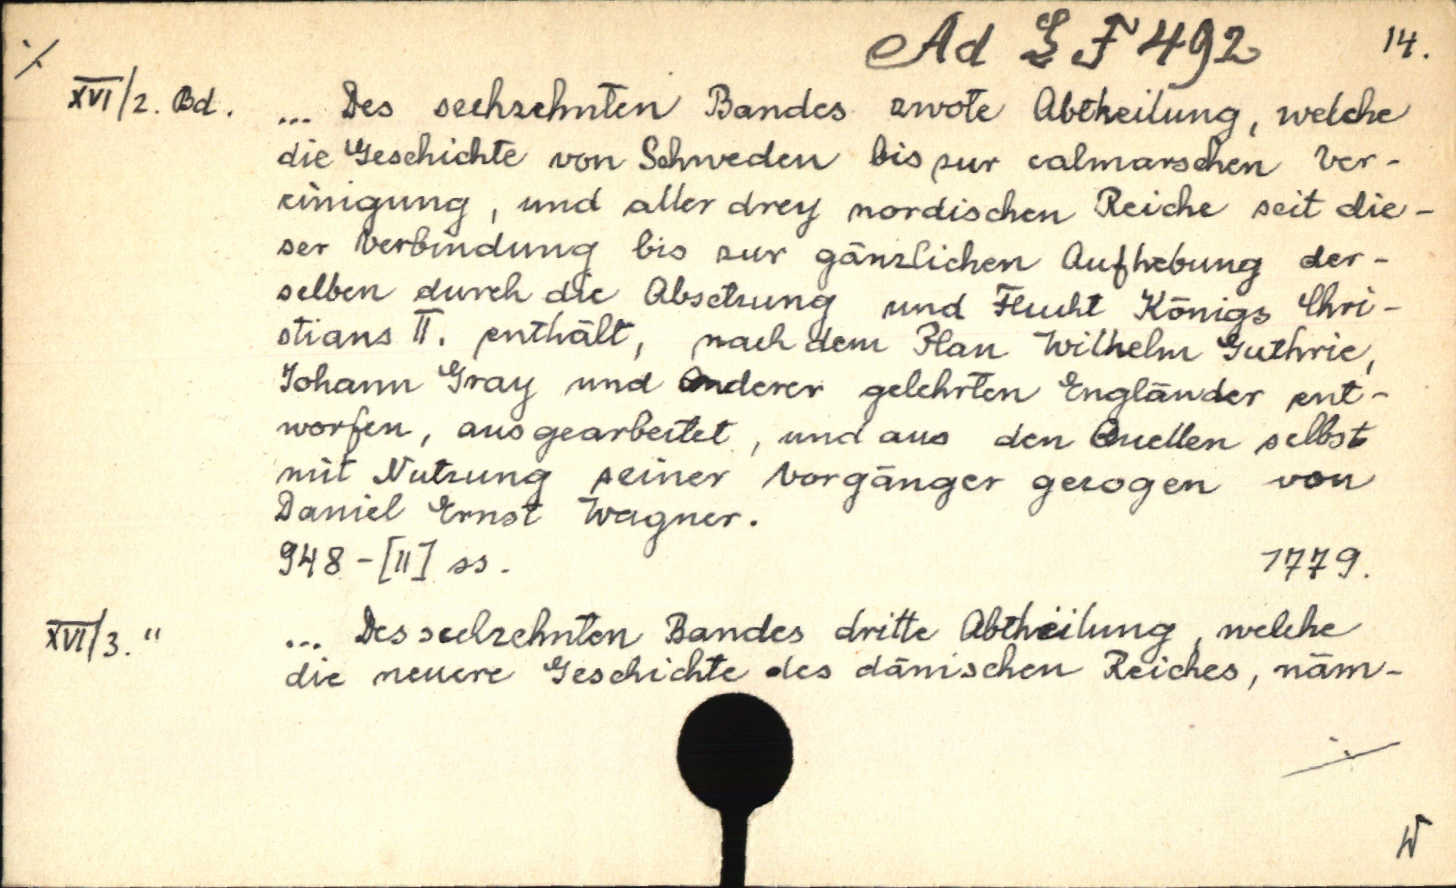 Ad L F 492
14.
XVI/2. Bd. ... Des sechzehnten Bandes zwote Abtheilung, welche
die Geschichte von Schweden bis zur calmarschen Ver-
einigung, und aller drey nordischen Reiche seit die-
ser Verbindung bis zur gänzlichen Aufhebung der-
selben durch die Absetzung und Flucht Königs Chri-
stians II. enthält, nach dem Plan Wilhelm Guthrie,
Johann Gray und anderer gelehrten Engländer ent-
worfen, ausgearbeitet, und aus den Quellen selbst
mit Nutzung seiner Vorgänger gezogen von
Daniel Ernst Wagner.
948-[II] ss. 1779.
XVI/3. " ... Des sechzehnten Bandes dritte Abtheilung, welche
die neuere Geschichte des dänischen Reiches, näm-
W